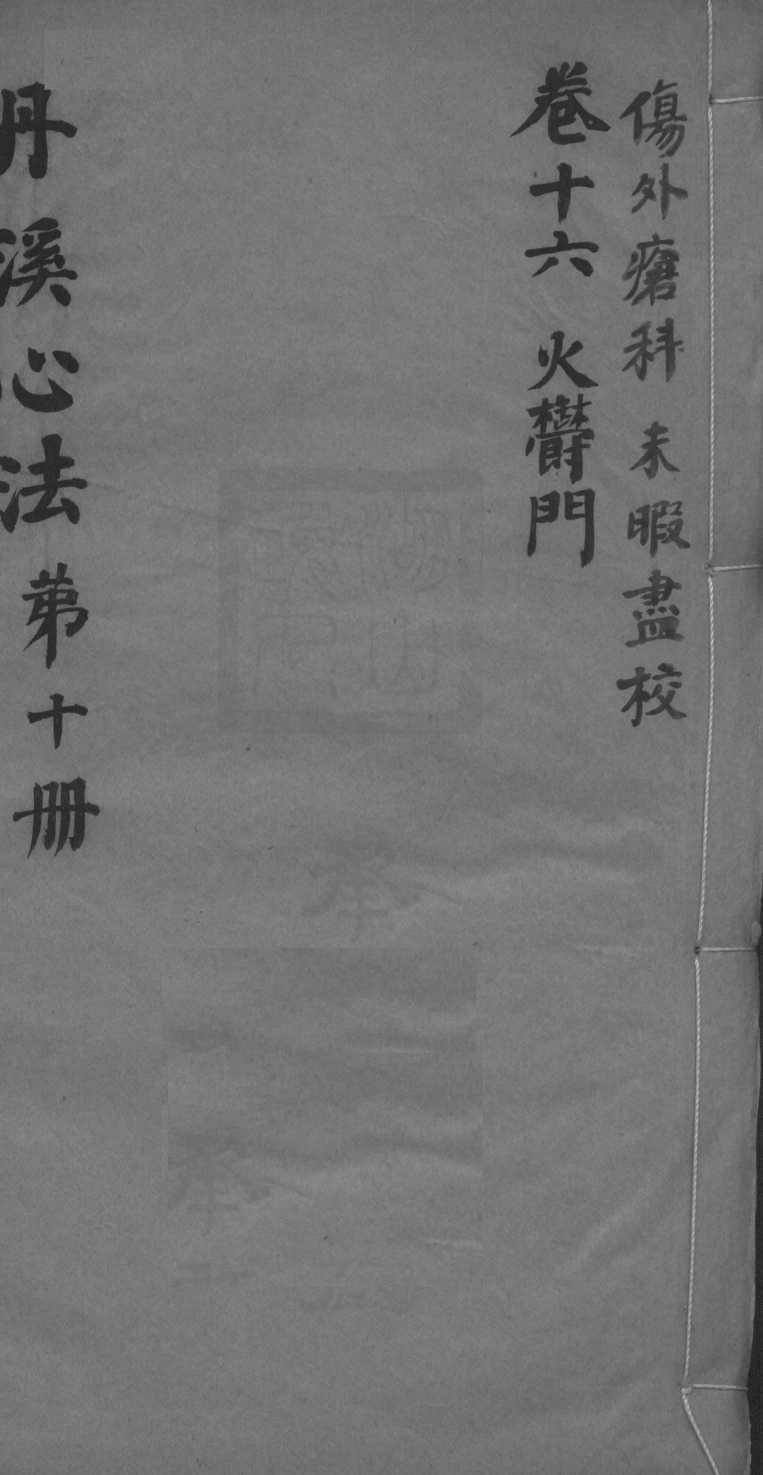 傷外瘡科 未暇盡校
卷十六 火欝門
丹溪心法 苐十册